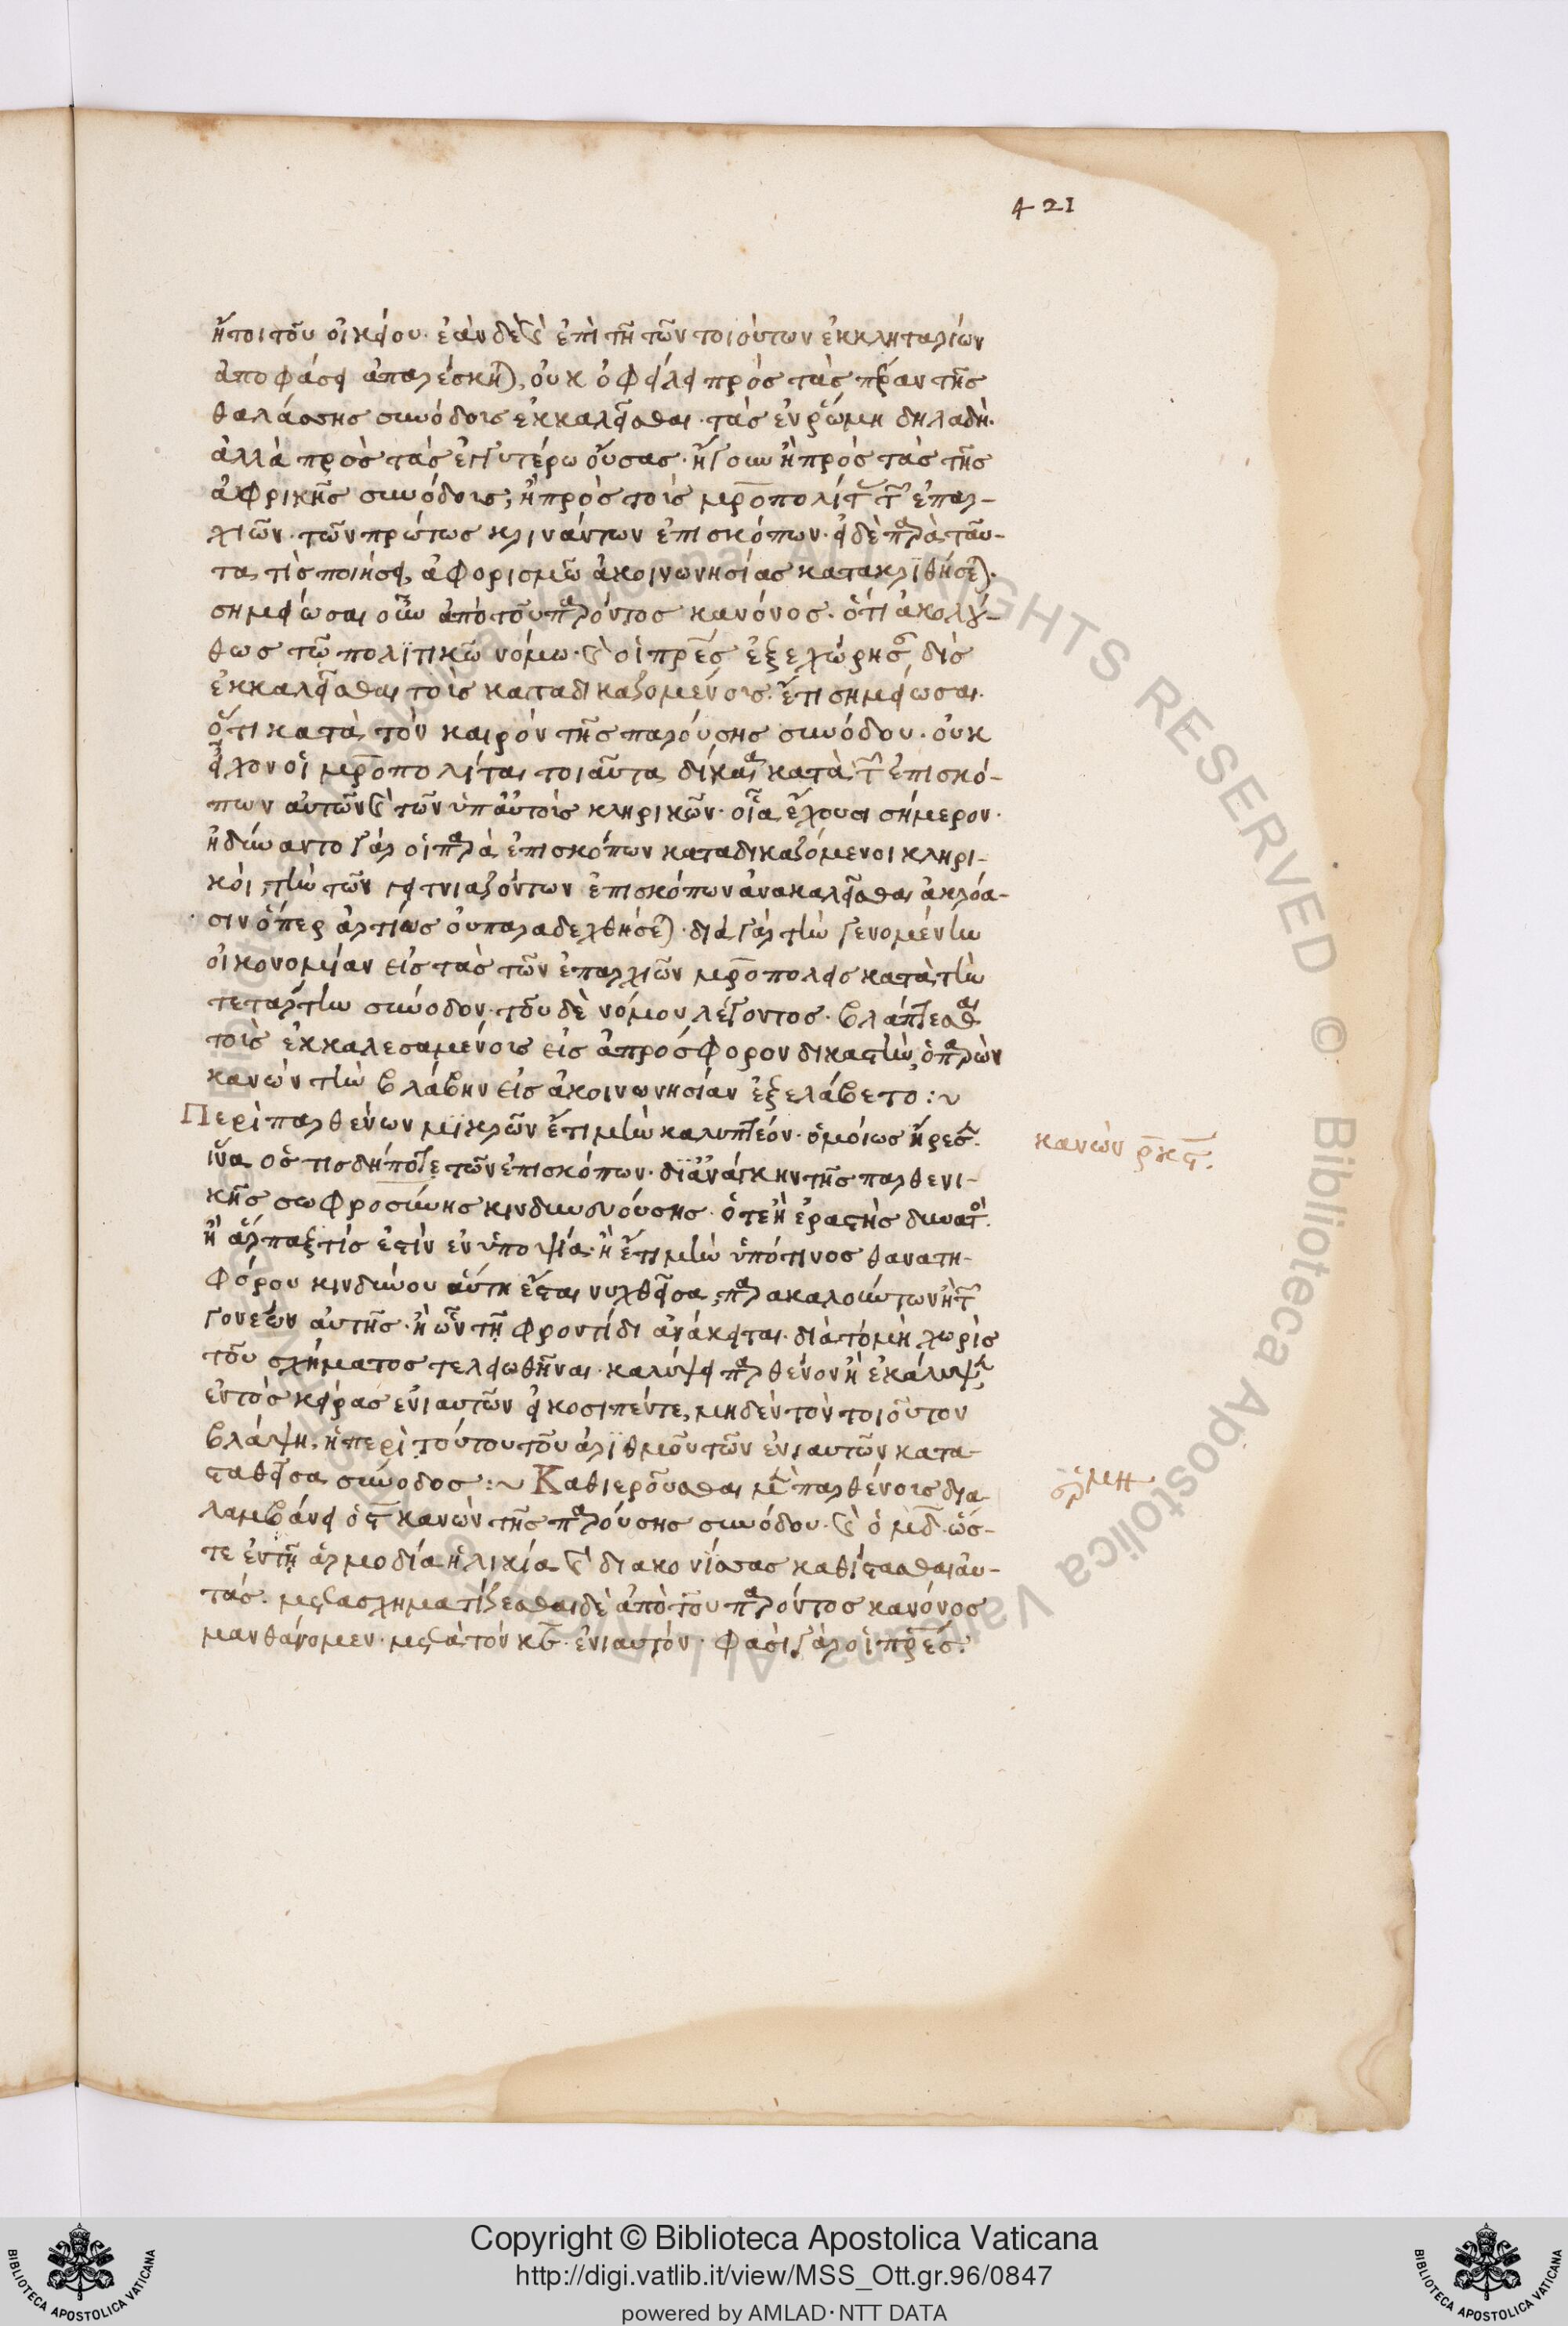 421
ἤτοι τοῦ οἰκείου· ἐὰν δὲ καὶ ἐπὶ τῇ τῶν τοιούτων ἐκκληταρίων
ἀποφάσει ἀπαρέσκηται, οὐκ ὀφείλει πρὸς τὰς πέραν τῆς
θαλάσσης συνόδους ἐκκαλεῖσθαι· τὰς ἐν ῥώμη δηλαδή·
ἀλλὰ πρὸς τὰς ἐγγυτέρω οὔσας· ἤγουν ἢ πρὸς τὰς τῆς
ἀφρικῆς συνόδους, ἢ πρὸς τοὺς μροπολίτ τῶν ἐπαρ-
χιῶν· τῶν πρώτως κρινάντων ἐπισκόπων· εἰ δὲ παρὰ ταῦ-
τα τίς ποιήσει, ἀφορισμῶ ἀκοινωνησίας κατακριθήσεται·
σημείωσαι οὖν ἀπὸ τοῦ παρόντος κανόνος· ὅτι ἀκολού-
θως τῷ πολιτικῶ νόμω· καὶ οἱ πρες ἐξεχώρησαν δὶς
ἐκκαλεῖσθαι τοῖς καταδικαζομένοις. ἔτι σημείωσαι·
ὅτι κατὰ τὸν καιρὸν τῆς παρούσης συνόδου· οὐκ
εἶχον οἱ μροπολίται τοιαῦτα δίκαια κατὰ τῶν ἐπισκό-
πων αὐτῶν καὶ τῶν ὑπ αὐτοὺς κληρικῶν· οἷα ἔχουσι σήμερον·
ἠδύναντο γὰρ οἱ παρὰ ἐπισκόπων καταδικαζόμενοι κληρι-
κοὶ, τὴν τῶν γειτνιαζόντων ἐπισκόπων ἀνακαλεῖσθαι ἀκρόα-
σιν ὅπερ ἀρτίως οὐ παραδεχθήσεται· διὰ γὰρ τὴν γενομένην
οἰκονομίαν εἰς τὰς τῶν ἐπαρχιῶν μροπόλεις κατὰ τὴν
τετάρτην σύνοδον· τοῦ δὲ νόμου λέγοντος· βλάπτεσθαι
τοὺς ἐκκαλεσαμένους εἰς ἀπρόσφορον δικαστὴν, ὁ παρὼν
κανὼν τὴν βλάβην εἰς ἀκοινωνησίαν ἐξελάβετο :~
Περὶ παρθένων μικρῶν ἔτι μὴν καλυπτέον· ὁμοίως ἤρεσεν·
ἵνα ὅς τις δήποτε τῶν ἐπισκόπων· δι ἀνάγκην τῆς παρθενι-
κῆς σωφροσύνης κινδυνευούσης· ὅτε ἢ ἐραστὴς δυνατὸς·
ἢ ἅρπαξ τίς ἐστὶν ἐν ὑποψία· ἢ ἔτι μὴν ὑπό τινος θανατη-
φόρου κινδύνου αὐτὴ ἔσται νυχθεῖσα, παρακαλούντων ἢ τῶν
γονέων αὐτῆς· ἢ ὧν τῇ φροντίδι ἀνάκειται· διὰ τὸ μὴ χωρὶς
τοῦ σχήματος τελειωθῆναι· καλύψει παρθένον ἢ ἐκάλυψεν,
ἐντὸς κείρας ἐνιαυτῶν εἰκοσιπέντε, μηδὲν τὸν τοιοῦτον
βλάψη, ἡ περὶ τούτου τοῦ ἀριθμοῦ τῶν ἐνιαυτῶν κατα-
σταθεῖσα σύνοδος :~ Καθιεροῦσθαι μὲν παρθένους δια-
λαμβάνει ὁ ς κανὼν τῆς παρούσης συνόδου· καὶ ὁ μδ· ὥσ-
τε ἐν τῇ ἁρμοδία ἡλικία καὶ διακονίσσας καθίστασθαι αὐ-
τάς· μετασχηματίζεσθαι δὲ ἀπὸ τοῦ παρόντος κανόνος
μανθάνομεν· μετὰ τὸν κε· ἐνιαυτόν· φασὶ γὰρ οἱ πρες·
κανὼν ρκς·
ἑρμη
Copyright © Biblioteca Apostolica Vaticana
http://digi.vatlib.it/view/MSS_Ott.gr.96/0847
powered by AMLAD·NTT DATA